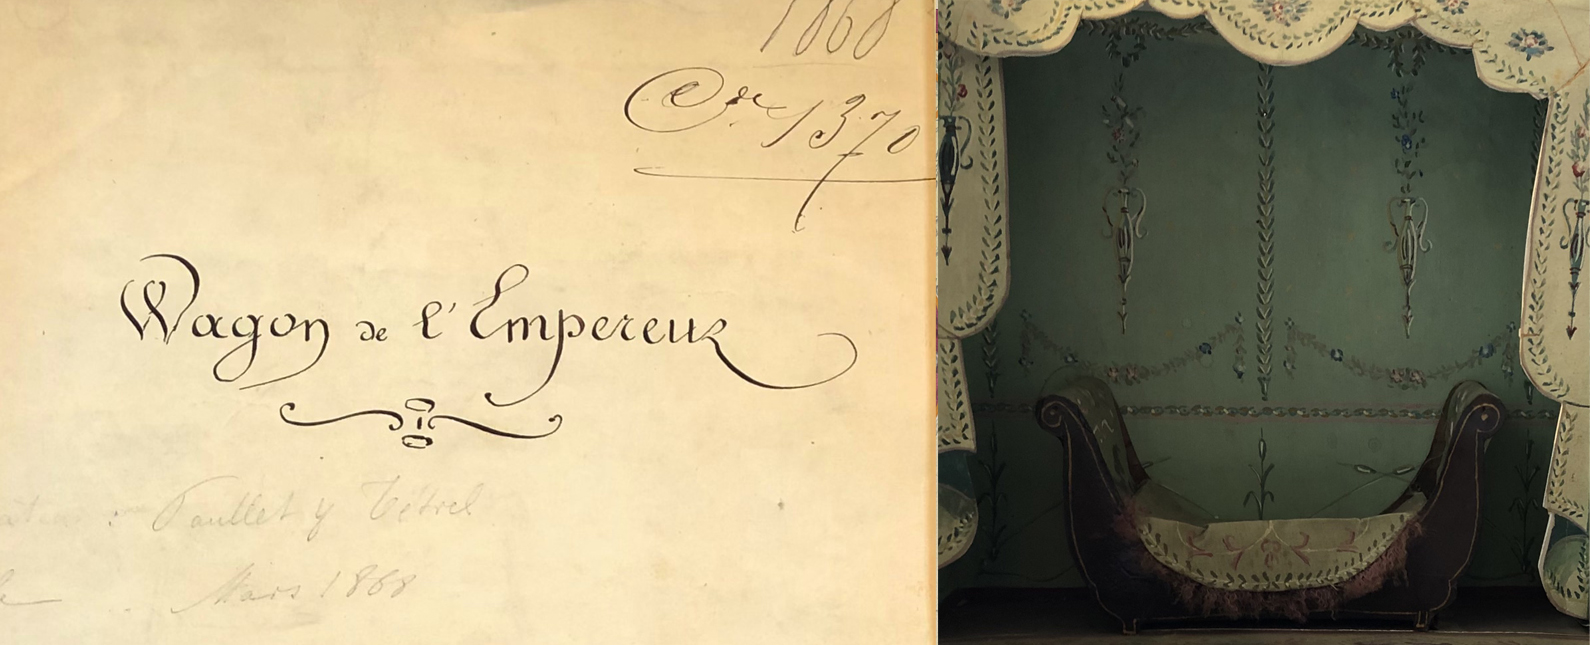 1868
Cr 1370
Wagon de l'Empereur
: Paullet y Tétrel
Mars 1868